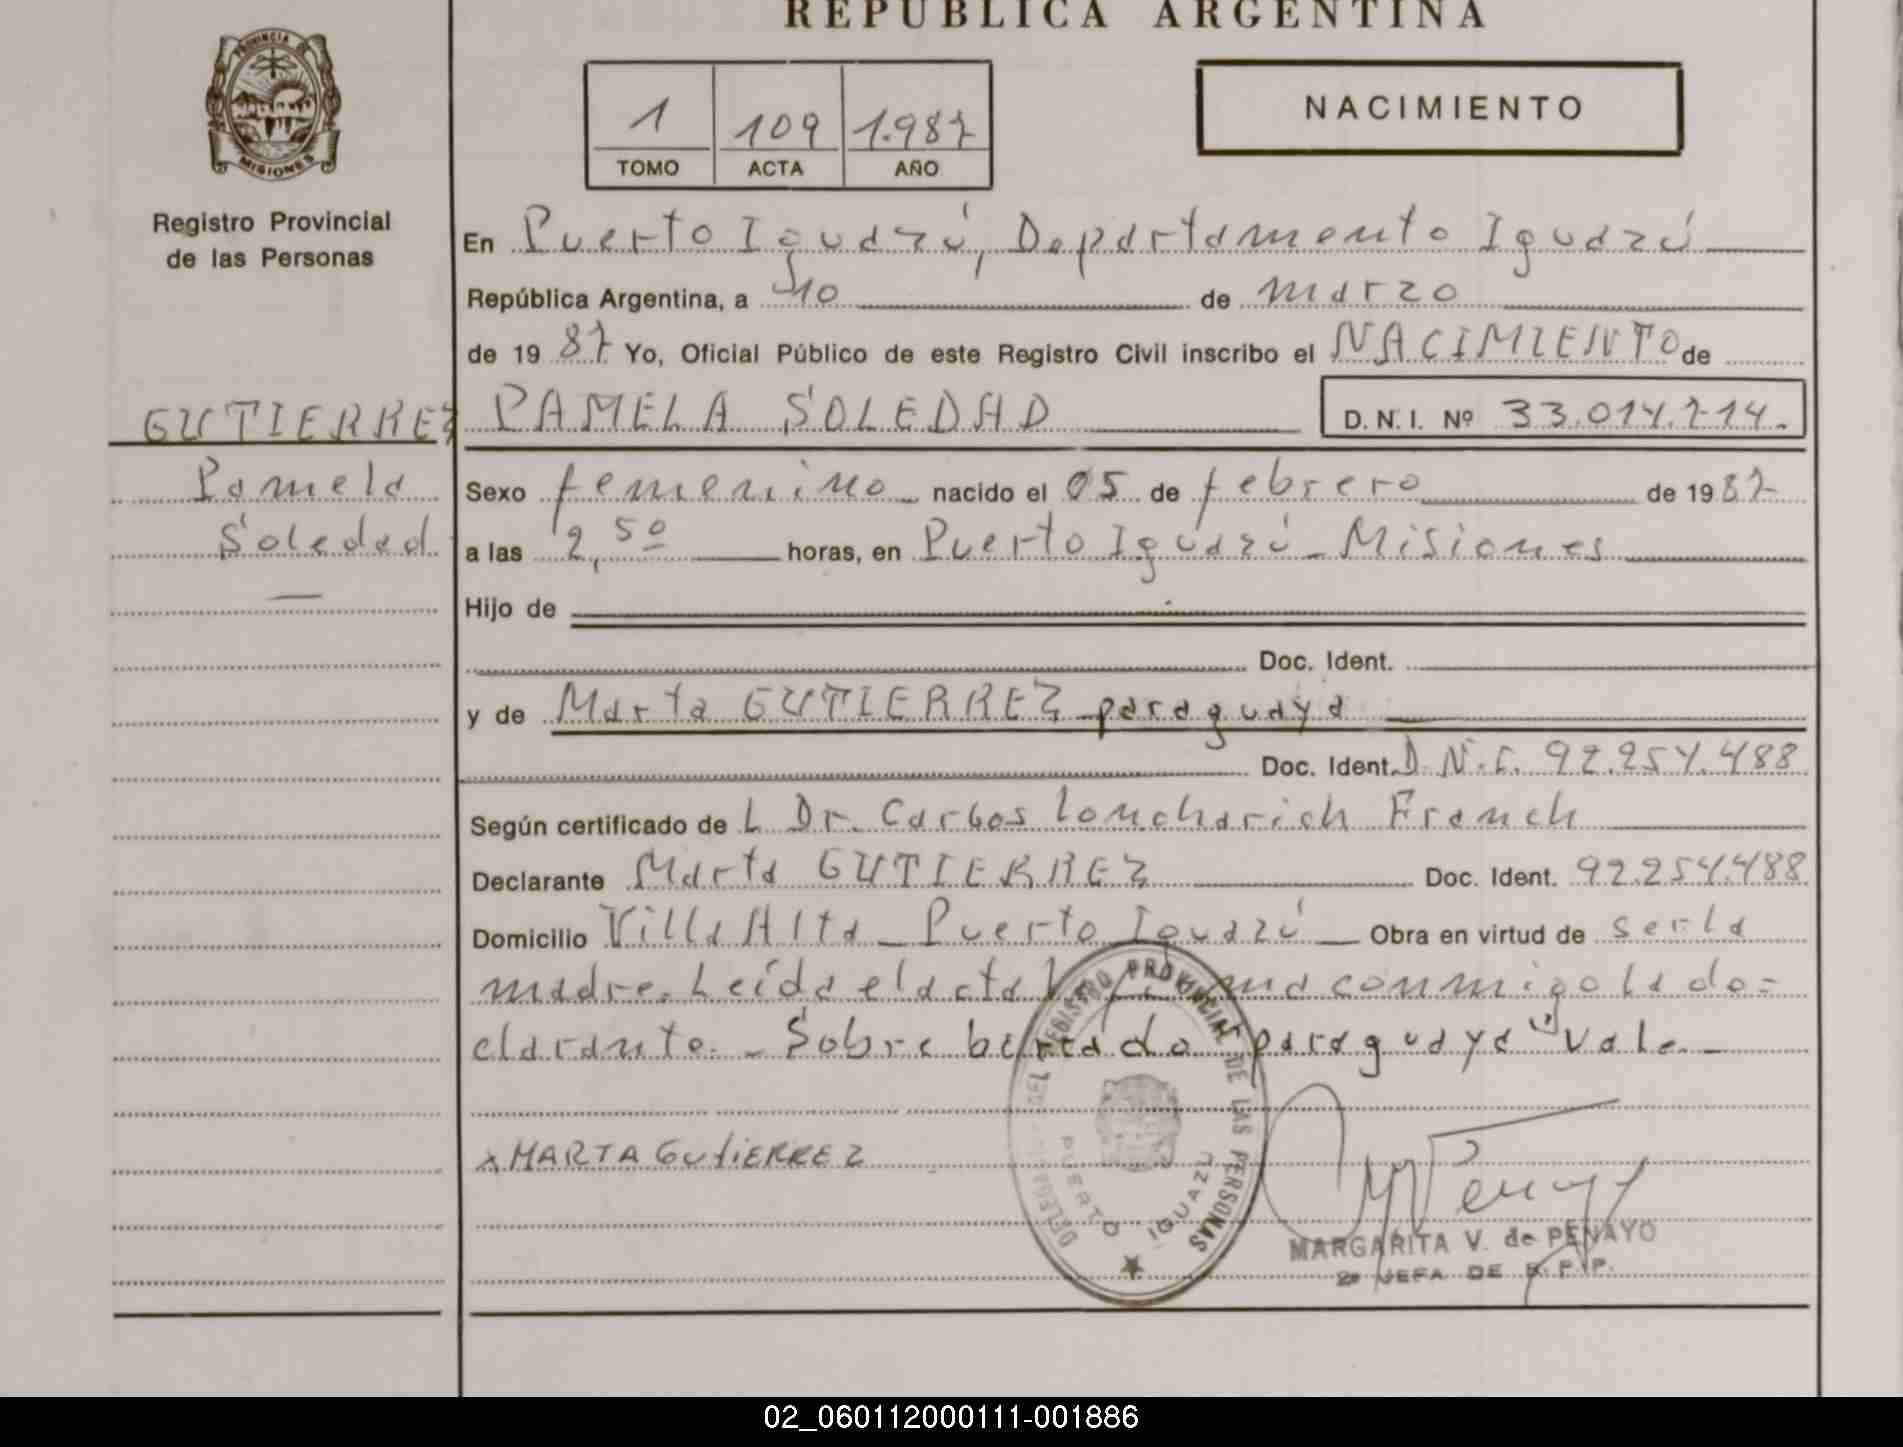 REPUBLICA ARGENTINA
PROVINCIA DE
MISIONES
Registro Provincial
de las Personas
1 109 1.987
TOMO ACTA AÑO
NACIMIENTO
En Puerto Iguazú, Departamento Iguazú
República Argentina, a 10 de marzo
de 1987 Yo, Oficial Público de este Registro Civil inscribo el NACIMIENTO de
GUTIERREZ PAMELA SOLEDAD D.N.I. Nº 33.014.714.
Pamela
Soledad
Sexo femenino nacido el 05 de febrero de 1987
a las 2,50 horas, en Puerto Iguazú - Misiones
Hijo de
Doc. Ident.
y de Marta GUTIERREZ paraguaya
Doc. Ident. D.N.I. 92.254.488
Según certificado de L Dr. Carlos Loncharich Franch
Declarante Marta GUTIERREZ Doc. Ident. 92.254.488
Domicilio Villa Alta - Puerto Iguazú Obra en virtud de ser la
madre. Leída el acta la firma conmigo la de=
clarante. - Sobre borrado "paraguaya" Vale -
x MARTA GUTIERREZ
DELEGACION DEL REGISTRO PROVINCIAL DE LAS PERSONAS
PUERTO IGUAZU
MARGARITA V. de PENAYO
2º JEFA DE R.P.P.
02_060112000111-001886